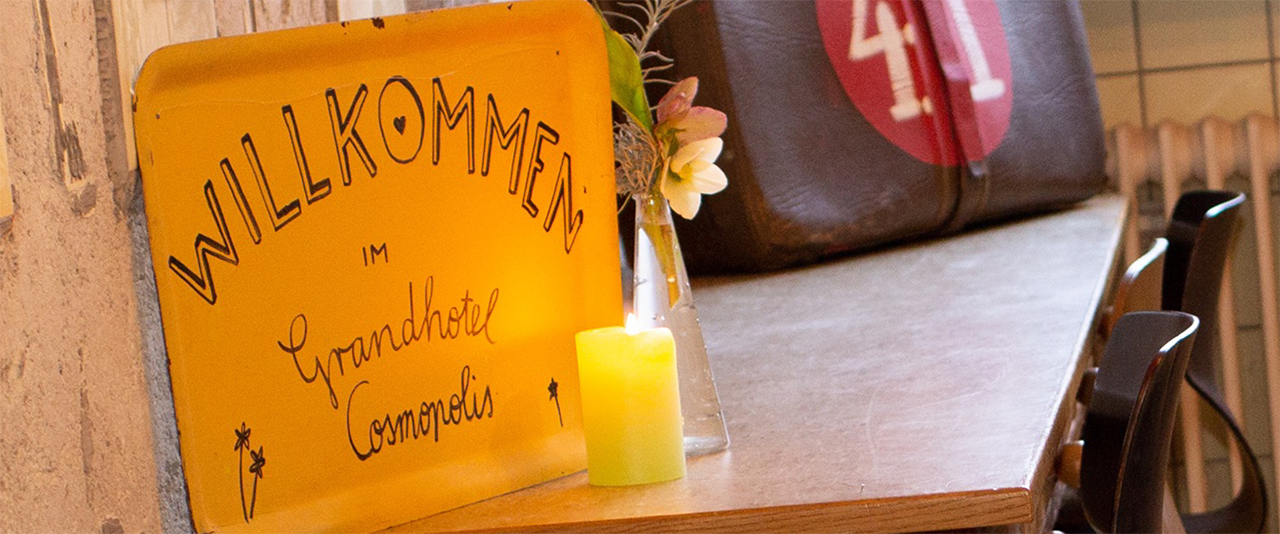 WILLKOMMEN
IM
Grandhotel
Cosmopolis
4.1